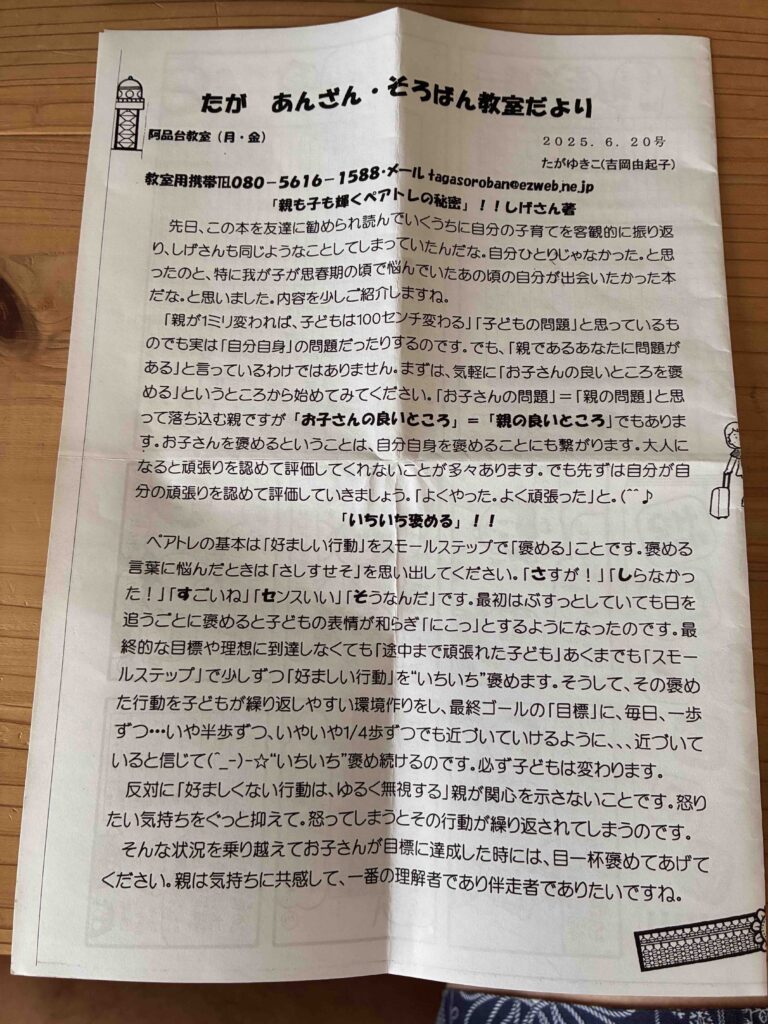 たが　あんざん・そろばん教室だより
阿品台教室（月・金）
２０２５．６．２０号
たがゆきこ（吉岡由起子）
教室用携帯℡080-5616-1588・メール tagasoroban@ezweb.ne.jp
「親も子も輝くペアトレの秘密」！！しげさん著
先日、この本を友達に勧められ読んでいくうちに自分の子育てを客観的に振り返
り、しげさんも同じようなことしてしまっていたんだな。自分ひとりじゃなかった。と思
ったのと、特に我が子が思春期の頃で悩んでいたあの頃の自分が出会いたかった本
だな。と思いました。内容を少しご紹介しますね。
「親が1ミリ変われば、子どもは100センチ変わる」「子どもの問題」と思っているも
のでも実は「自分自身」の問題だったりするのです。でも、「親であるあなたに問題が
ある」と言っているわけではありません。まずは、気軽に「お子さんの良いところを褒
める」というところから始めてみてください。「お子さんの問題」＝「親の問題」と思
って落ち込む親ですが「お子さんの良いところ」＝「親の良いところ」でもありま
す。お子さんを褒めるということは、自分自身を褒めることにも繋がります。大人に
なると頑張りを認めて評価してくれないことが多々あります。でも先ずは自分が自
分の頑張りを認めて評価していきましょう。「よくやった。よく頑張った」と。(^^♪
「いちいち褒める」！！
ペアトレの基本は「好ましい行動」をスモールステップで「褒める」ことです。褒める
言葉に悩んだときは「さしすせそ」を思い出してください。「さすが！」「しらなかっ
た！」「すごいね」「センスいい」「そうなんだ」です。最初はぶすっとしていても日を
追うごとに褒めると子どもの表情が和らぎ「にこっ」とするようになったのです。最
終的な目標や理想に到達しなくても「途中まで頑張れた子ども」あくまでも「スモー
ルステップ」で少しずつ「好ましい行動」を“いちいち”褒めます。そうして、その褒め
た行動を子どもが繰り返しやすい環境作りをし、最終ゴールの「目標」に、毎日、一歩
ずつ…いや半歩ずつ、いやいや1/4歩ずつでも近づいていけるように、、、近づいて
いると信じて(^_-)-☆“いちいち”褒め続けるのです。必ず子どもは変わります。
反対に「好ましくない行動は、ゆるく無視する」親が関心を示さないことです。怒り
たい気持ちをぐっと抑えて。怒ってしまうとその行動が繰り返されてしまうのです。
そんな状況を乗り越えてお子さんが目標に達成した時には、目一杯褒めてあげて
ください。親は気持ちに共感して、一番の理解者であり伴走者でありたいですね。